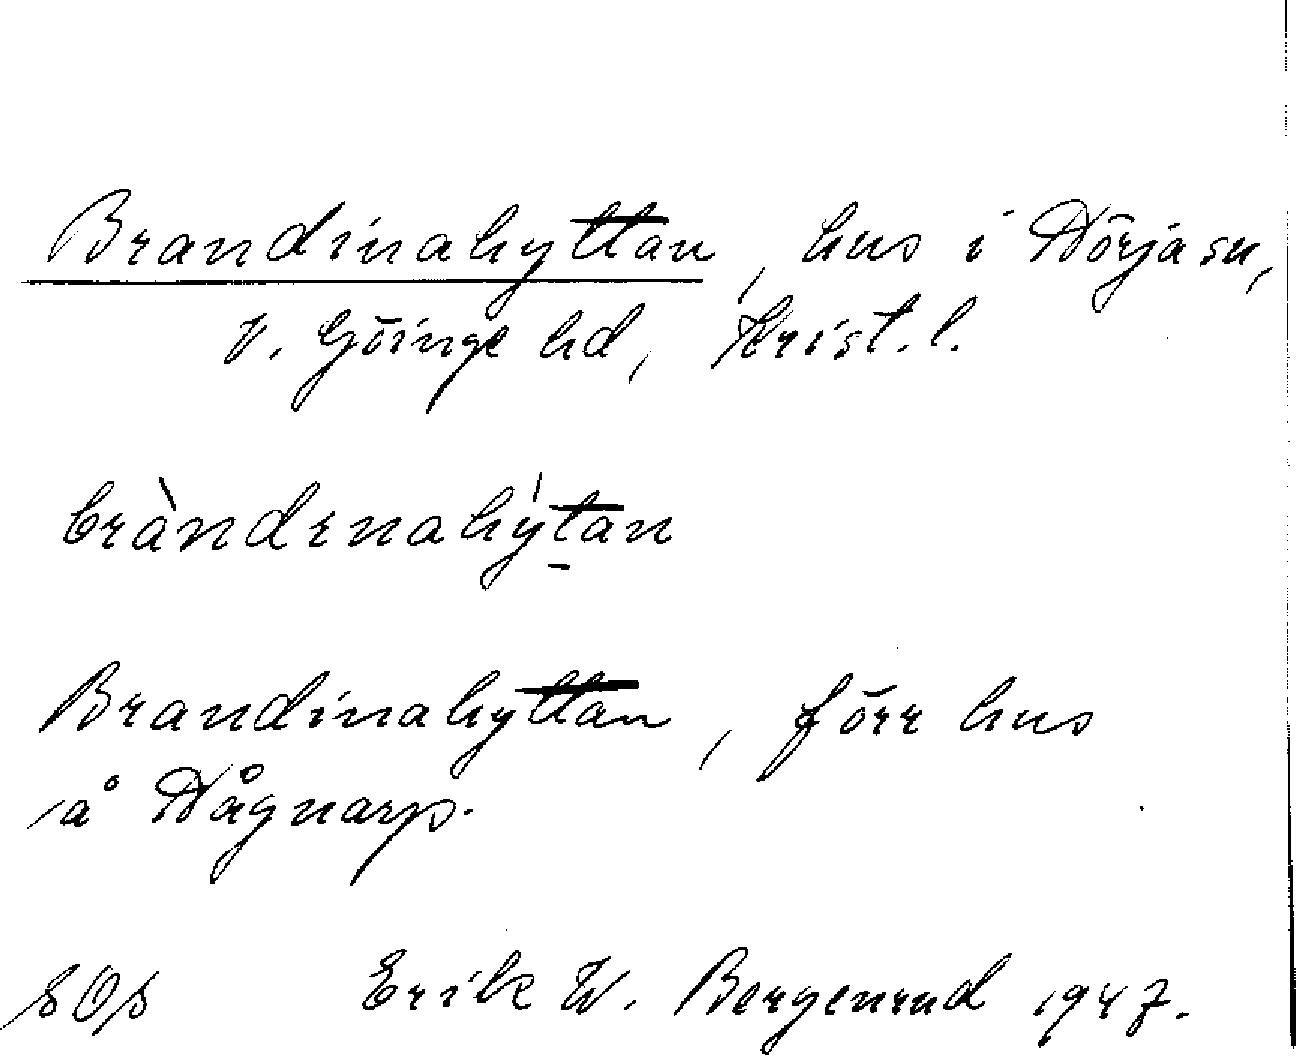 Brandinahyttan, hus i Nörja sn,
V. Göinge hd, Krist. l.
bràndinahýtan
Brandinahyttan, förr hus
å Någnarp.
SOS Erik W. Bergenrud 1947.